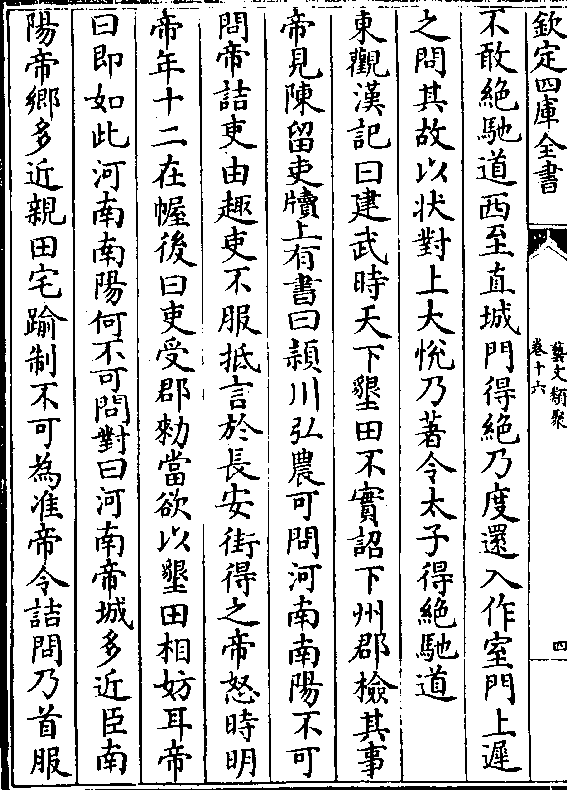 欽定四庫全書
藝文類聚
卷十六
四
不敢絶馳道西至直城門得絶乃度還入作室門上遲
之問其故以状對上大悅乃著令太子得絶馳道
東觀漢記曰建武時天下墾田不實詔下州郡檢其事
帝見陳留吏牘上有書曰頴川弘農可問河南南陽不可
問帝詰吏由趣吏不服抵言於長安街得之帝怒時明
帝年十二在幄後曰吏受郡勑當欲以墾田相妨耳帝
曰即如此河南南陽何不可問對曰河南帝城多近臣南
陽帝鄉多近親田宅踰制不可為准帝令詰問乃首服